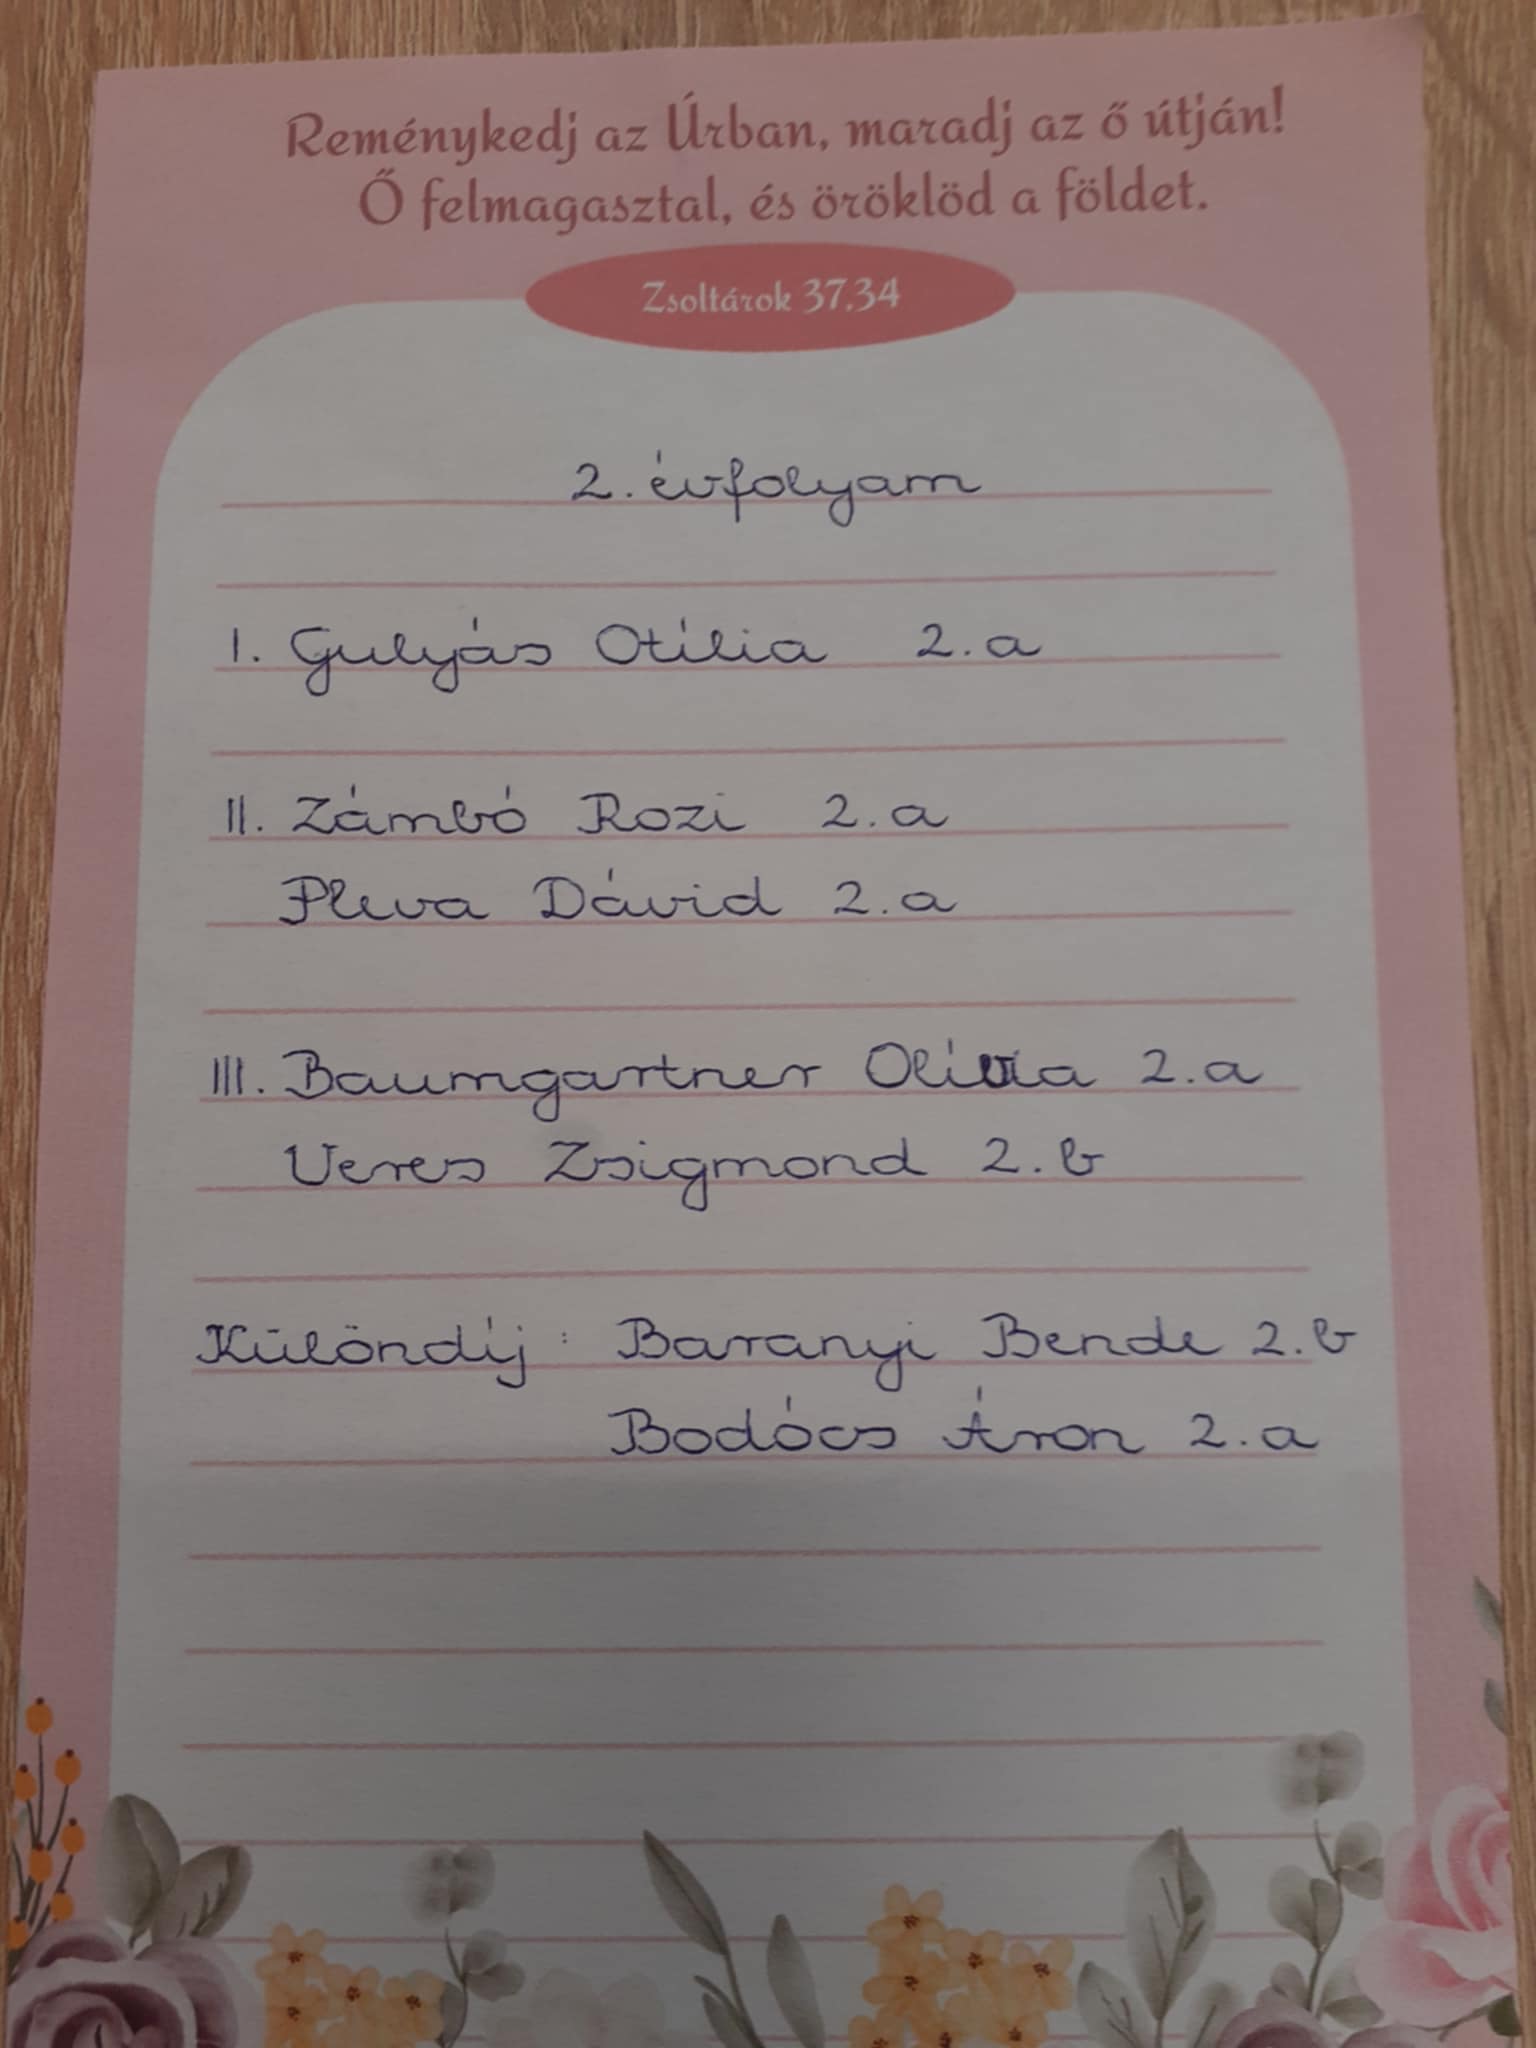 Reménykedj az Úrban, maradj az ő útján!
Ő felmagasztal, és öröklöd a földet.
Zsoltárok 37,34
2. évfolyam
I. Gulyás Otília 2.a
II. Zámbó Rozi 2.a
Pleva Dávid 2.a
III. Baumgartner Olívia 2.a
Veres Zsigmond 2.b
Különdíj: Baranyi Bende 2.b
Bodócs Áron 2.a